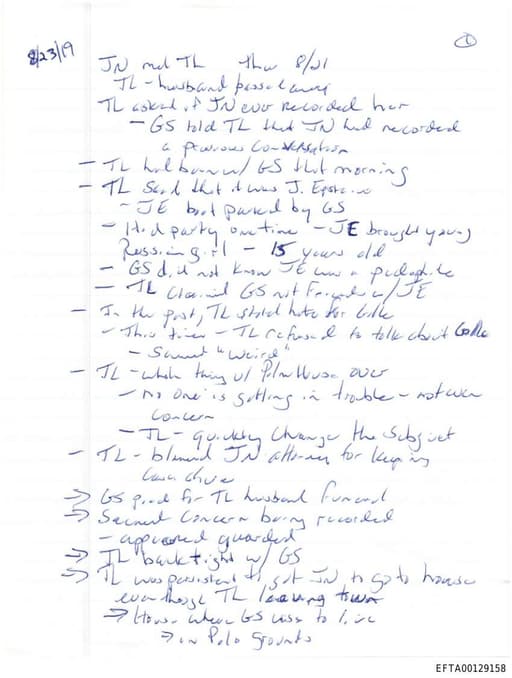 8/23/19
①
JN met TL Thur 8/21
TL - husband passed away
TL asked if JN ever recorded her
- GS told TL that JN had recorded
a previous conversation
- TL had been w/ GS that morning
- TL Said that it was J. Epstein
- JE boat parked by GS
- Had party one time - JE brought young
Russian girl - 15 years old
- GS did not know JE was a pedophile
- TL claimed GS not Friends w/ JE
- In the past, TL stated hate for
- This time - TL refused to talk about
- Seemed "weird"
- TL - whole thing w/ Palm House over
- No one is getting in trouble - not even
concern
- TL - quickly change the subject
- TL - blamed JN attorney for keeping
case alive
⇒ GS paid for TL husband Funeral
⇒ Seemed concern being recorded
- appeared guarded
⇒ TL back tight w/ GS
⇒ TL was persistent to get JN to go to house
even though TL leaving town
→ House where GS uses to live
→ in Polo grounds
EFTA00129158